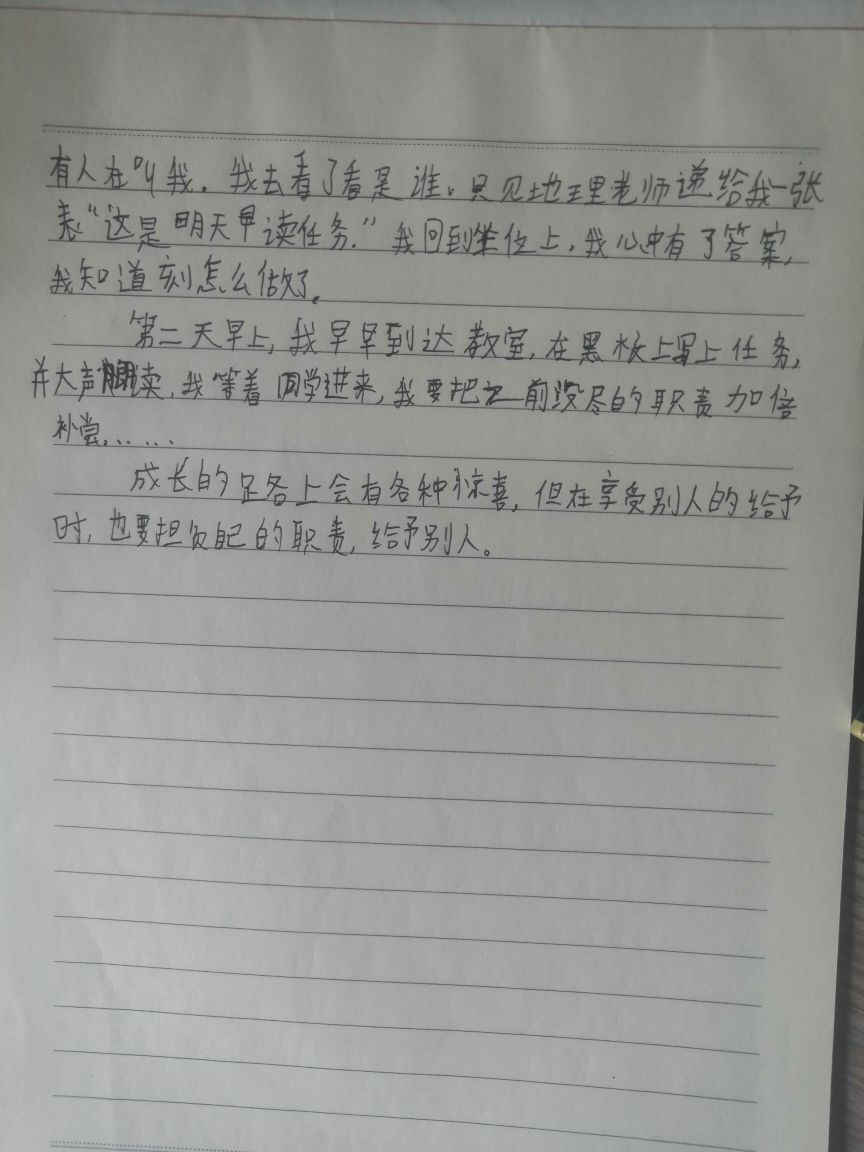 有人在叫我。我去看了看是谁。只见地理老师递给我一张
表“这是明天早读任务.”我回到坐位上,我心中有了答案,
我知道该怎么做了。
第二天早上,我早早到达教室,在黑板上写上任务,
并大声朗读,我等着同学进来,我要把之前没尽的职责加倍
补尝……
成长的足各上会有各种惊喜,但在享受别人的给予
时,也要担负自己的职责,给予别人。